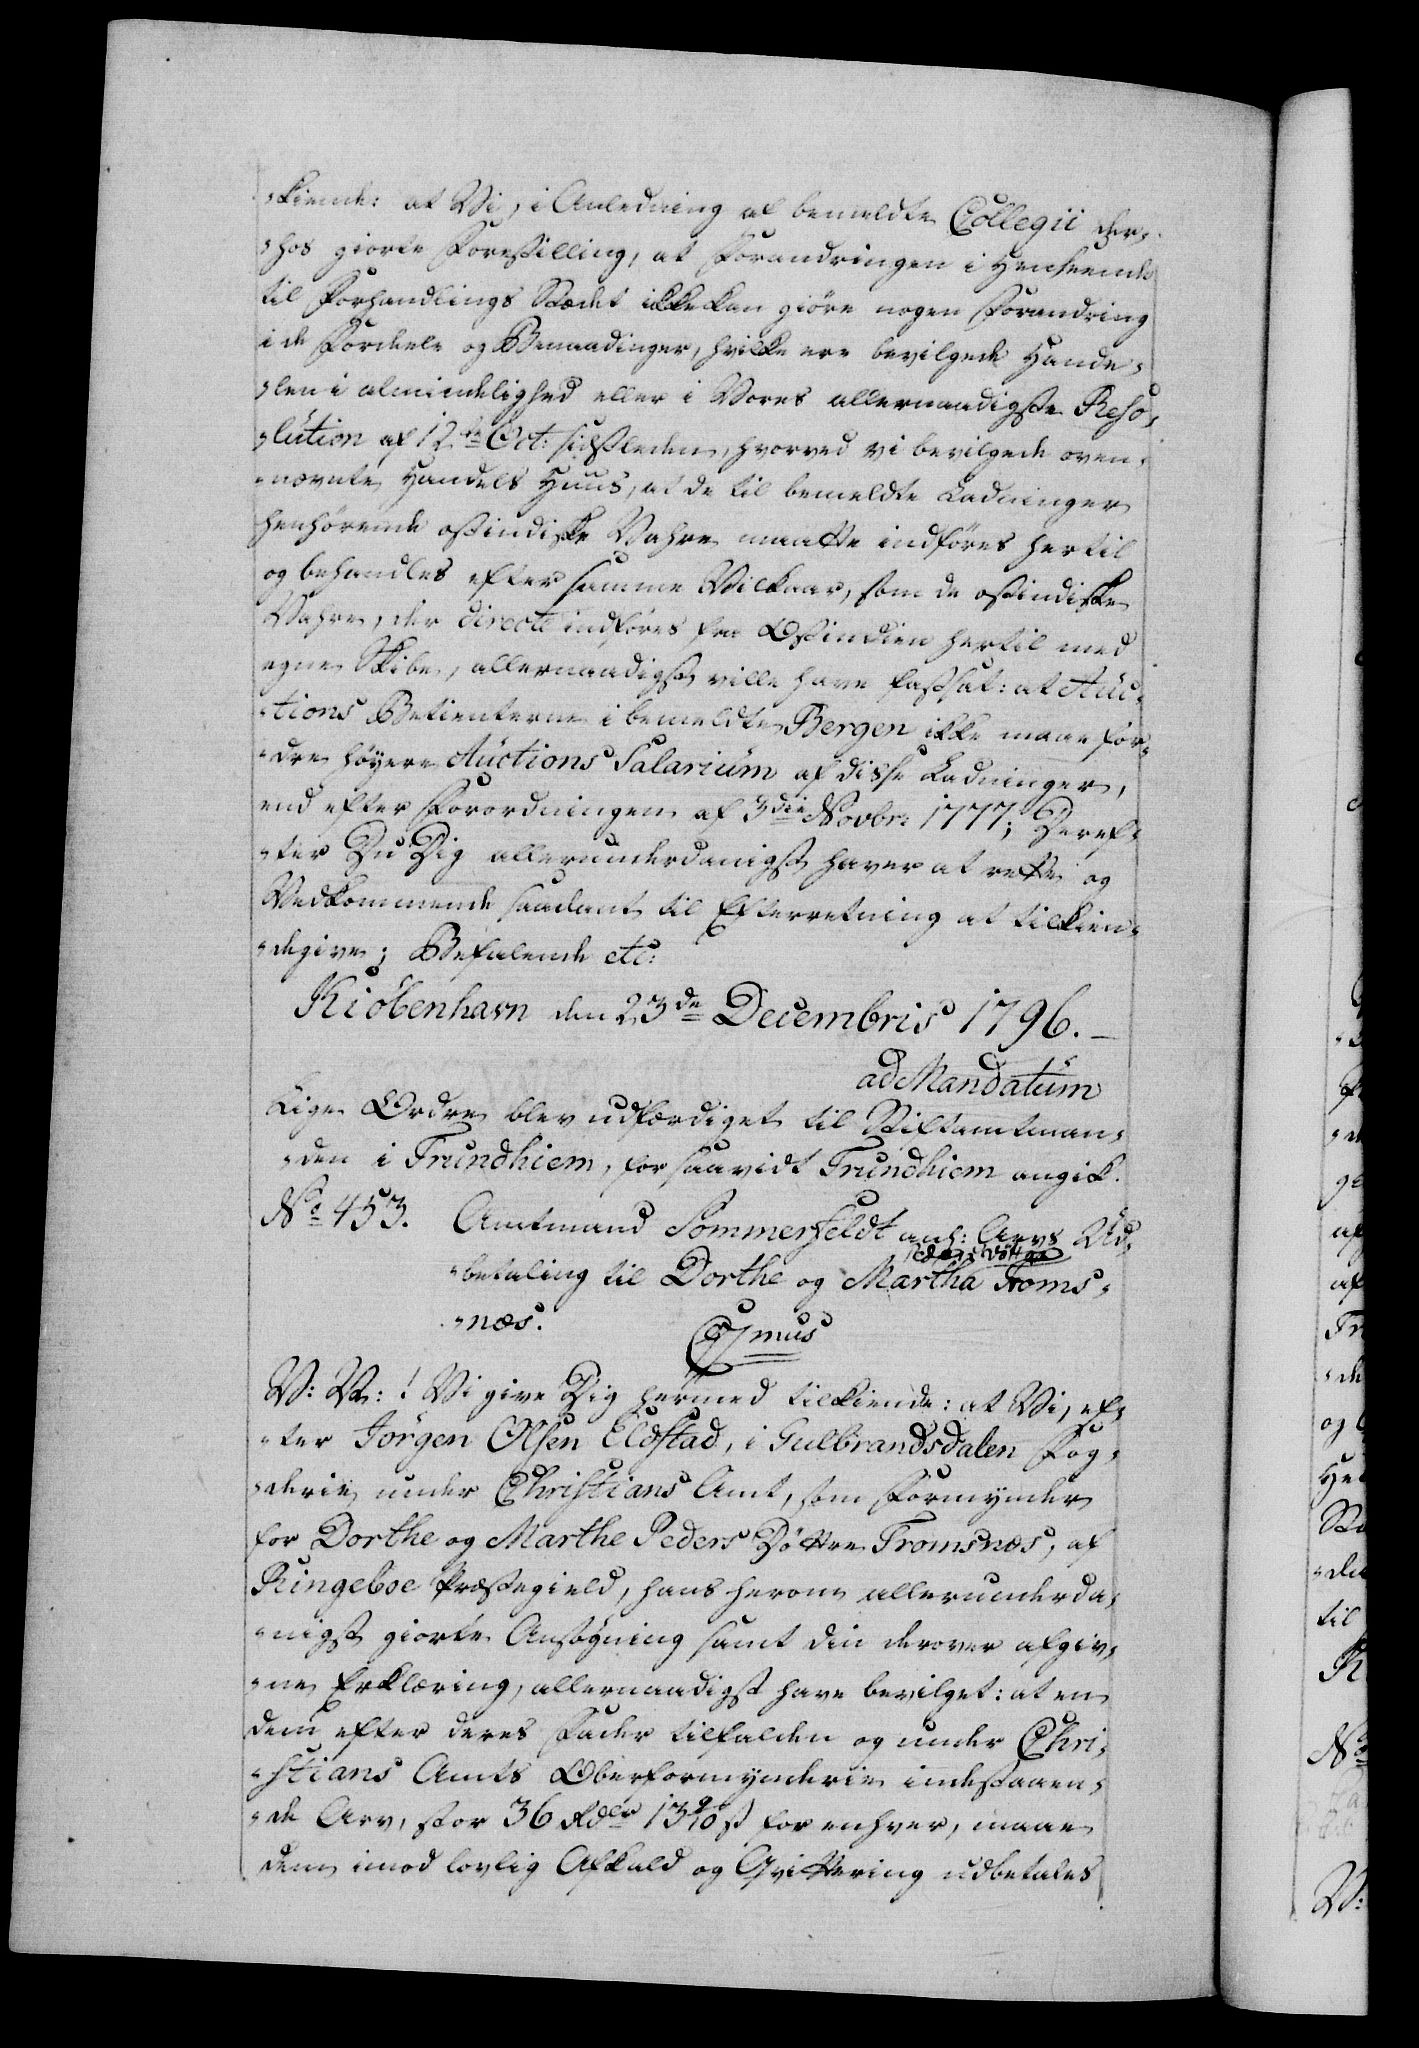 -kiende: at Vi, i Anledning af bemeldte Collegii der-
-hos giorte Forestilling, at Forandringen i Henseende
til Forhandlings Stædet ikke kan giöre nogen Forandring
i de Fordeele og Benaadinger, hvilke ere bevilgede Hande-
-len i almindelighed eller i Vores allernaadigste Reso-
-lution af 12te Oct: sidstleden, hvorved vi bevilgede oven-
-nævnte Handels Huus, at de til bemeldte Ladninger
henhörende ostindiske Vahre maatte indföres hertil
og behandles efter samme Vilkaar, som de ostindiske
Vahre, der directe indföres fra Ostindien hertil med
egne Skibe, allernaadigst ville have fastsat: at Auc-
-tions Betienterne i bemeldte Bergen ikke maae for-
-dre höyere Auctions Salarium af disse Ladninger,
end efter Forordningen af 3die Novbr: 1777; Deref-
-ter Du Dig allerunderdanigst haver at rette og
Vedkommende saadant til Efterretning at tilkien-
-degive; Befalende etc:
Kiöbenhavn den 23de Decembris 1796.
ad Mandatum
Lige Ordre blev udfærdiget til Stiftamtman-
-den i Trundhiem, for saavidt Trundhiem angik.
No 453. Amtmand Sommerfeldt anh: Arvs Ud-
-betaling til Dorthe og Martha Froms-
-næs.
V: V: ! Vi give Dig hermed tilkiende: at Vi, ef-
-ter Jörgen Olsen Eldstad, i Gulbrandsdalen Fog-
-derie under Christians Amt, som Formynder
for Dorthe og Marthe Peders Döttre Tromsnæs, af
Ringeboe Præstegield, hans herom allerunderda-
-nigst giorte Ansögning samt din derover afgiv-
-ne Erklæring, allernaadigst have bevilget: at en
dem efter deres Fader tilfalden og under Chri-
-stians Amts Oberformynderie indestaaen-
-de Arv, stor 36 Rdlr for enhver, maae
dem imod lovlig Afkald og Qvittering udbetales